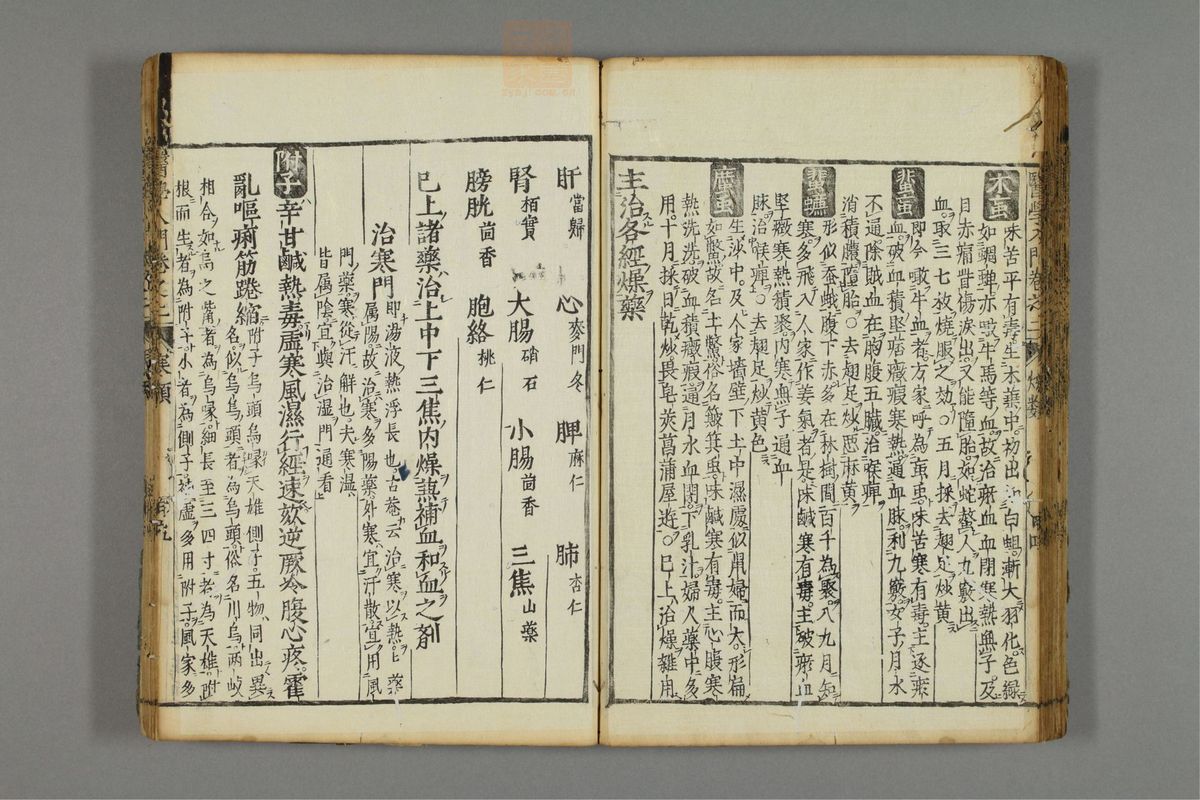 木䖟
味苦平有毒生木葉中初出如白蛆漸大羽化色綠
如蜩蟬亦啖牛馬等血故治瘀血血閉寒熱無子及
目赤痛眥傷淚出又能墮胎如蛇螫人九竅出
血取三七枚燒服之効○五月採去翅足炒黃
蜚䖟
即今啖牛血者方家呼為䖟虫味苦寒有毒主逐瘀
血破血積堅痞癥瘕寒熱通血脉利九竅女子月水
不通除賊血在胸腹五臟治喉痺
消積膿墮胎○去翅足炒惡麻黃
蜚蠊
形似蚕蛾腹下赤多在林樹間百千為聚八九月知
寒多飛入人家作姜氣者是味鹹寒有毒主破瘀血
堅癥寒熱積聚内寒無子通血
脉治喉痺○去翅足炒黃色
䗪虫
生沙中及人家墻壁下土中濕處似鼠婦而大形扁
如鱉故名土鱉俗名簸箕虫味鹹寒有毒主心腹寒
熱洗洗破血積癥瘕通月水血閉下乳汁婦人藥中多
用十月採日乾炒畏皂莢菖蒲屋遊○已上治燥雜用
主治各經燥藥
肝當歸 心麥門冬 脾麻仁 肺杏仁
腎栢實 大腸硝石 小腸茴香 三焦山藥
膀胱茴香 胞絡桃仁
已上諸藥治上中下三焦内燥蒸補血和血之剤
治寒門
即湯液熱浮長也古菴云治寒以熱上藥
属陽故治寒多陽藥外寒宜汗散宜用風
門藥寒從汗解也夫寒濕
皆属陰宜與治濕門通看
附子
辛甘鹹熱毒虛寒風濕行經速欬逆厥冷腹心疼霍
亂嘔痢筋踡縮
附子烏頭烏喙天雄側子五物同出異
名似烏烏頭者為烏頭俗名川烏兩岐
相合如烏之觜者為烏喙細長至三四寸者為天雄附
根而生者為附子小者為側子補虛多用附子風家多